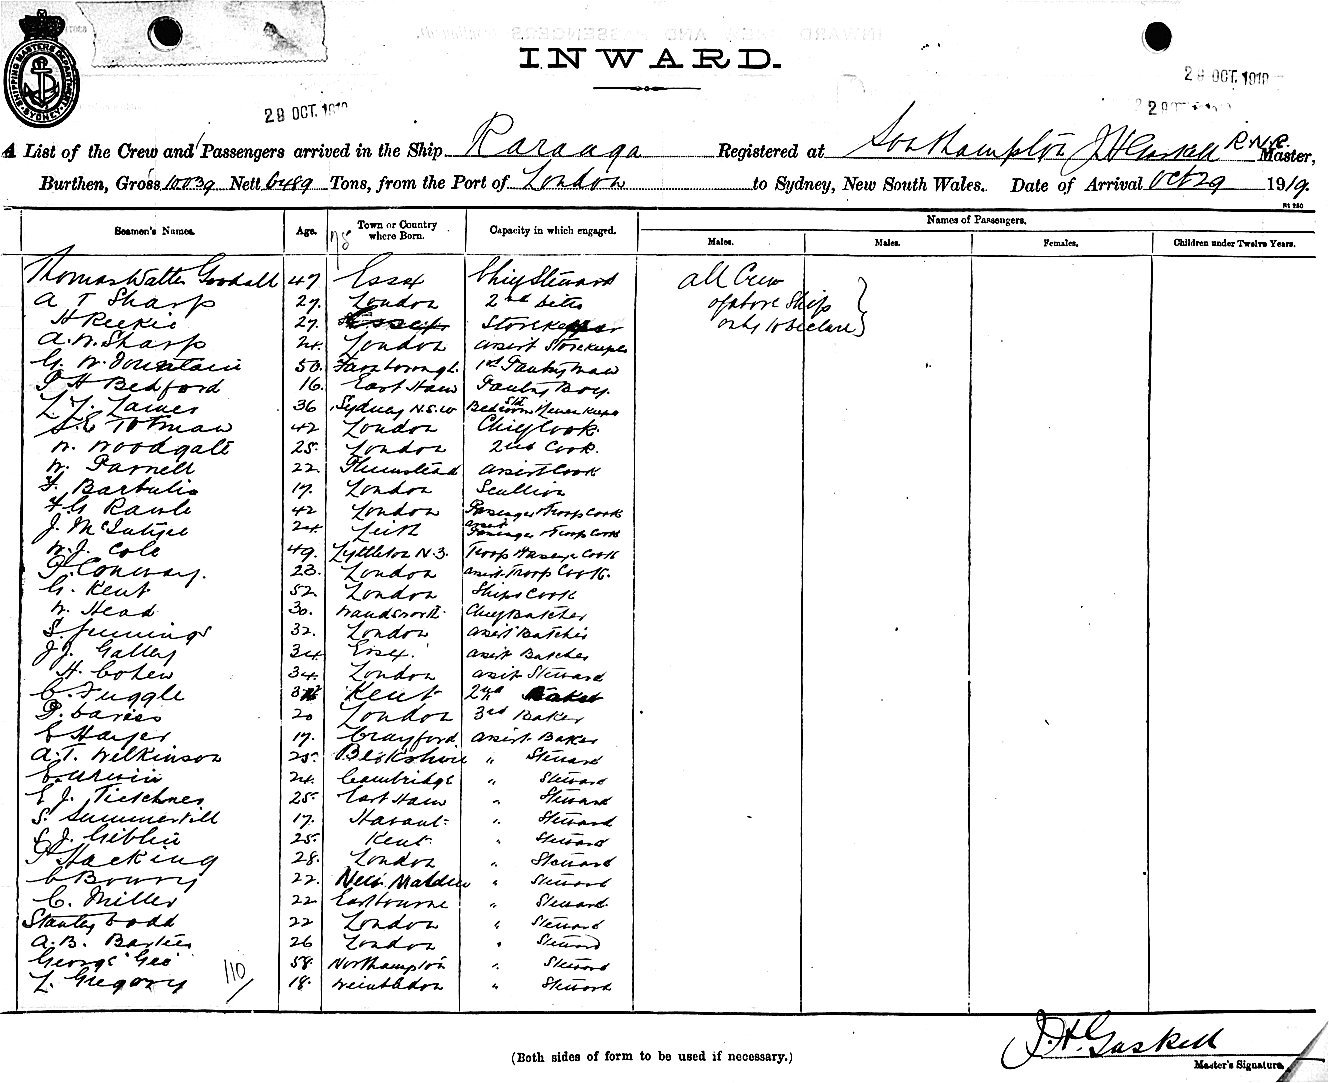 SHIPPING MASTERS DEPARTMENT SYDNEY
INWARD.
29 OCT. 1919
29 OCT. 1919
29 OCT.
A List of the Crew and Passengers arrived in the Ship Raranga Registered at Southampton J H Gaskell R.N.R. Master,
Burthen, Gross 10039 Nett 6489 Tons, from the Port of London to Sydney, New South Wales. Date of Arrival Oct 29 1919.
Seamen's Names. Age. Town or Country where Born. Capacity in which engaged. Names of Passengers.
Males. Males. Females. Children under Twelve Years.
78
Thomas Walter Goodall 47 Essex Chief Steward all Crew
A T Sharp 27. London 2nd ditto of above Ship
H Reekie 27. Essex Storekeeper only to declare
A. W. Sharp 24. London assist Storekeeper
G. W. Fountain 50. Farnborough 1st Pantry Man
P H Bedford 16. East Ham Pantry Boy.
36 Sydney N.S.W
S. E Totman 42 London Chief Cook.
W. Woodgate 25. London 2nd Cook.
W. Parnell 22. Plumstead assist Cook
17. London Scullion
F G Rawle 42 London Passenger & Troop Cook
J. McIntyre 24. Leith assist Passenger & Troop Cook
W. J. Cole 49. Lyttleton N.Z. Troop Cook
P. Conway. 23. London assist. Troop Cook.
G. Kent 52. London Ships Cook
W. Head 30. Wandsworth Chief Butcher
S. Jennings 32. London assist Butcher
J J. Galley 34 Essex. assist Butcher
H. Cohen 34. London assist Steward
C. Fuggle Kent 2nd Baker
P. Davies 20 London 3rd Baker
E Hayes 17. Crayford assist. Baker
A. T. Wilkinson 25. Berkshire " Steward
E. Urwin 24. Cambridge " Steward
E J. 25. East Ham " Steward
S. Summerhill 17. Havant. " Steward
J. Giblin 25. Kent. " Steward
Hacking 28. London " Steward
C Bowry 22. New Malden " Steward
C. Miller 22 Eastbourne " Steward.
Stanley Dodd 22 London " Steward
A. B. 26 London " Steward
George Gee 58. Northampton " Steward
L. Gregory 18. Wimbledon " Steward
110
(Both sides of form to be used if necessary.)
J. H. Gaskell
Master's Signature.